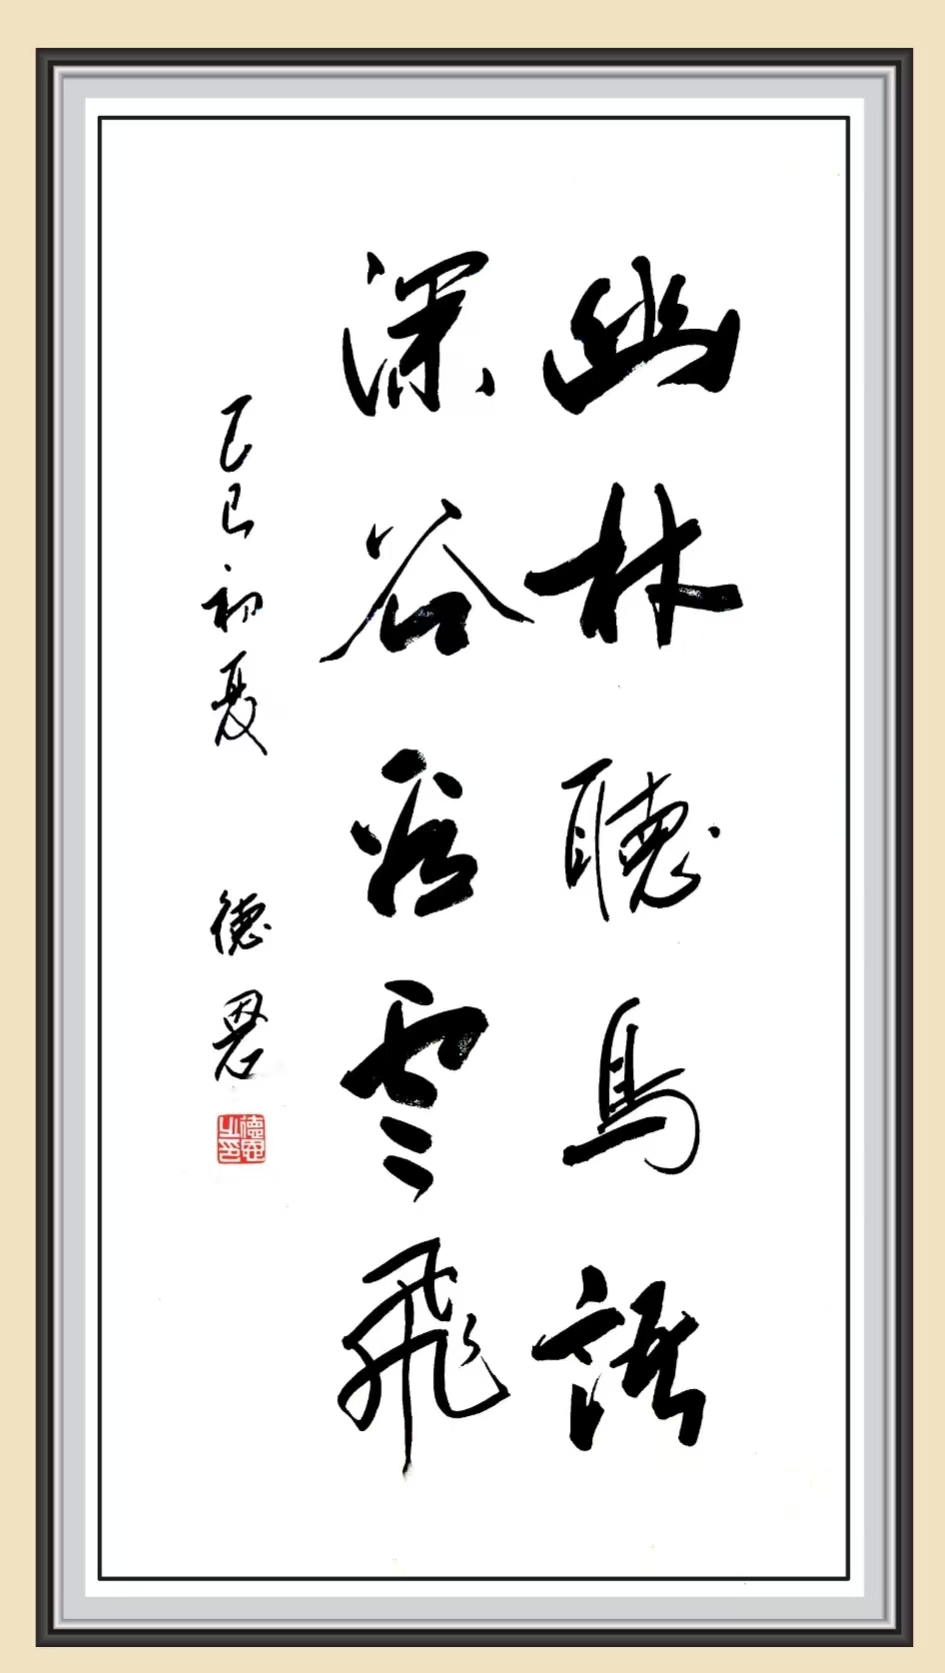 幽林聽鳥語
深谷看雲飛
乙巳初夏 德恩
德恩之印